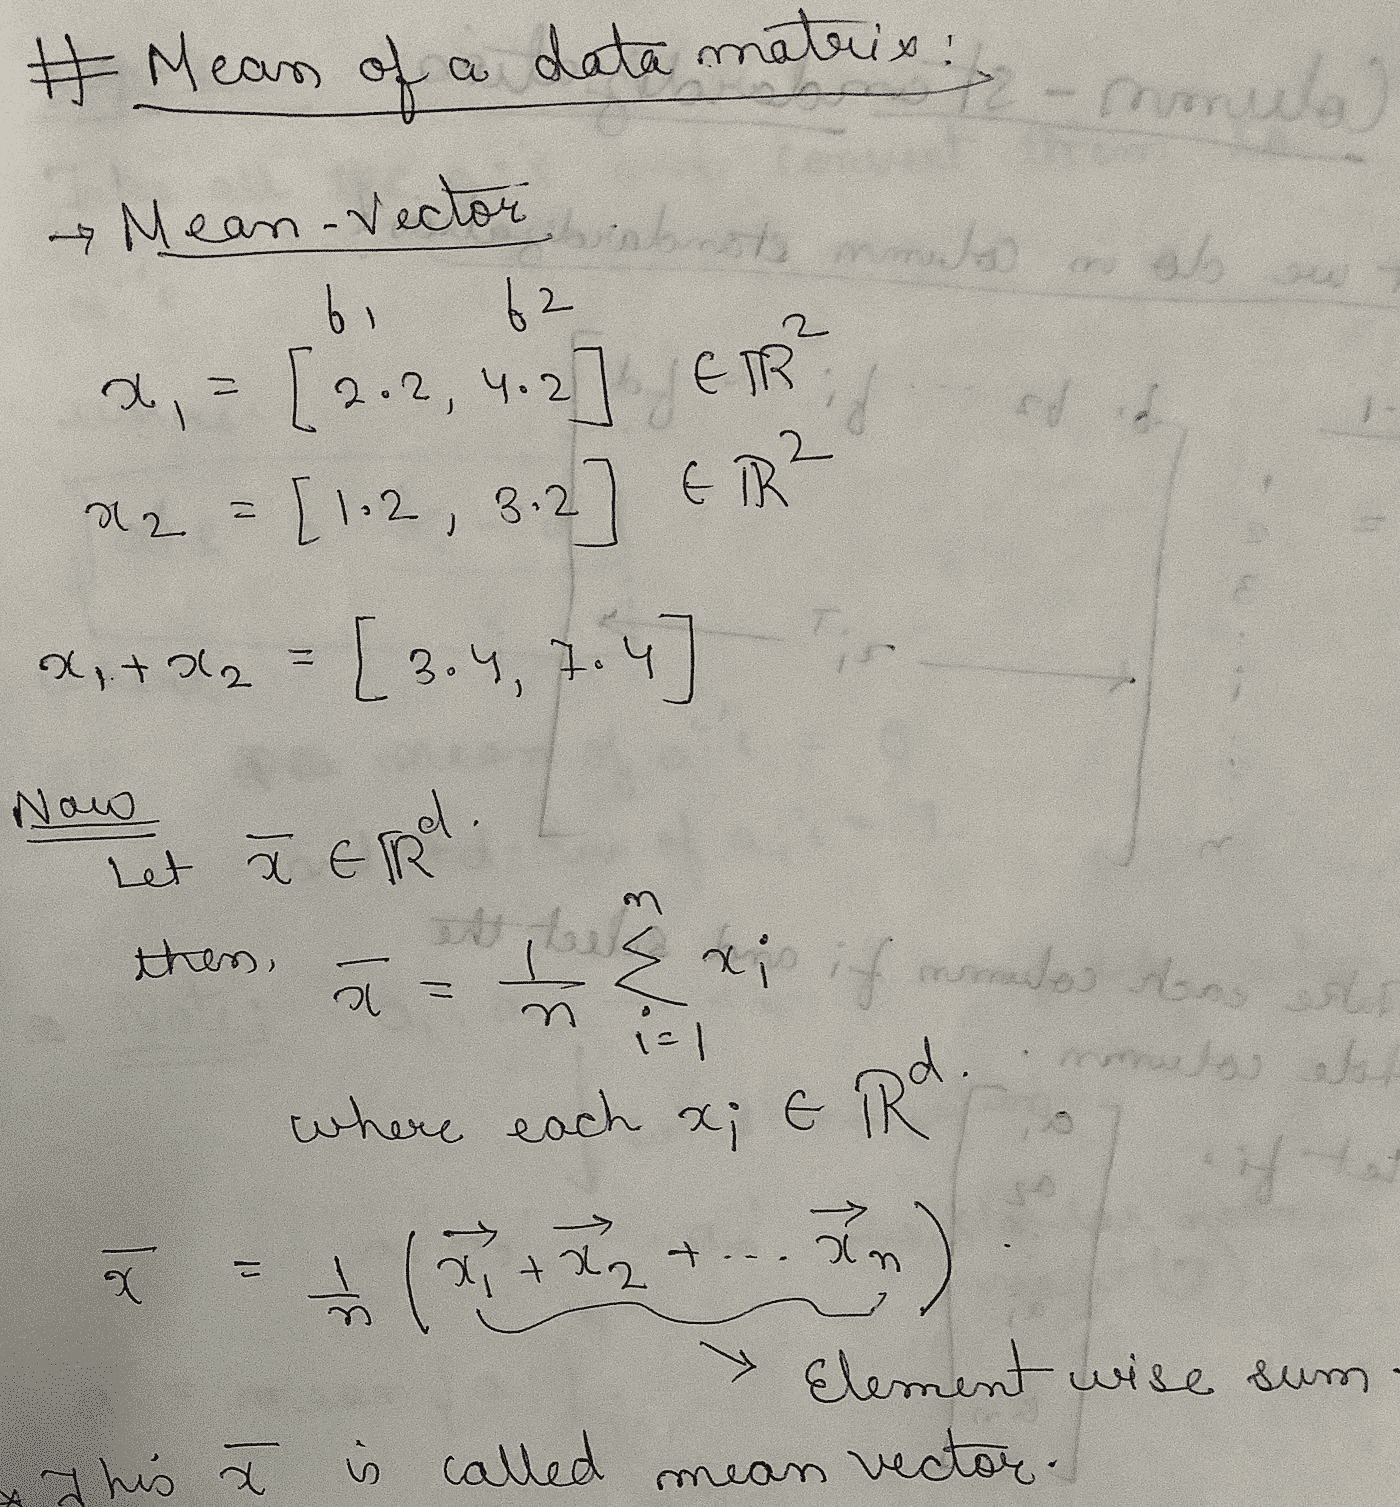 # Mean of a data matrix:
→ Mean-Vector
f1 f2
x1 = [2.2, 4.2] ∈ ℝ²
x2 = [1.2, 3.2] ∈ ℝ²
x1 + x2 = [3.4, 7.4]
Now
Let x̄ ∈ ℝᵈ.
then, x̄ = 1/n Σ_{i=1}^{n} xi
where each xi ∈ ℝᵈ.
x̄ = 1/n (x⃗1 + x⃗2 + ... x⃗n).
→ Element wise sum.
This x̄ is called mean vector.